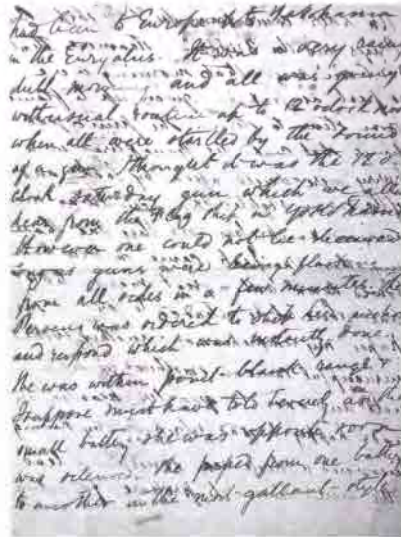 had been to Europe
in the Euryalus. It was a very rainy
dull morning and all was going
with usual routine up to 12 o'clock
when all were startled by the sound
of a gun. I thought it was the 12 o'
clock saturday gun which we all
hear from the Flag Ship in
However one could not be deceived
guns were being
from all sides in a few minutes. The
Perseus was ordered to slip her anchor
and respond which was instantly done
She was within point blank range &
I suppose must have told as the
small battery she was opposite to
was silenced. She passed from one battery
to another in the most gallant style